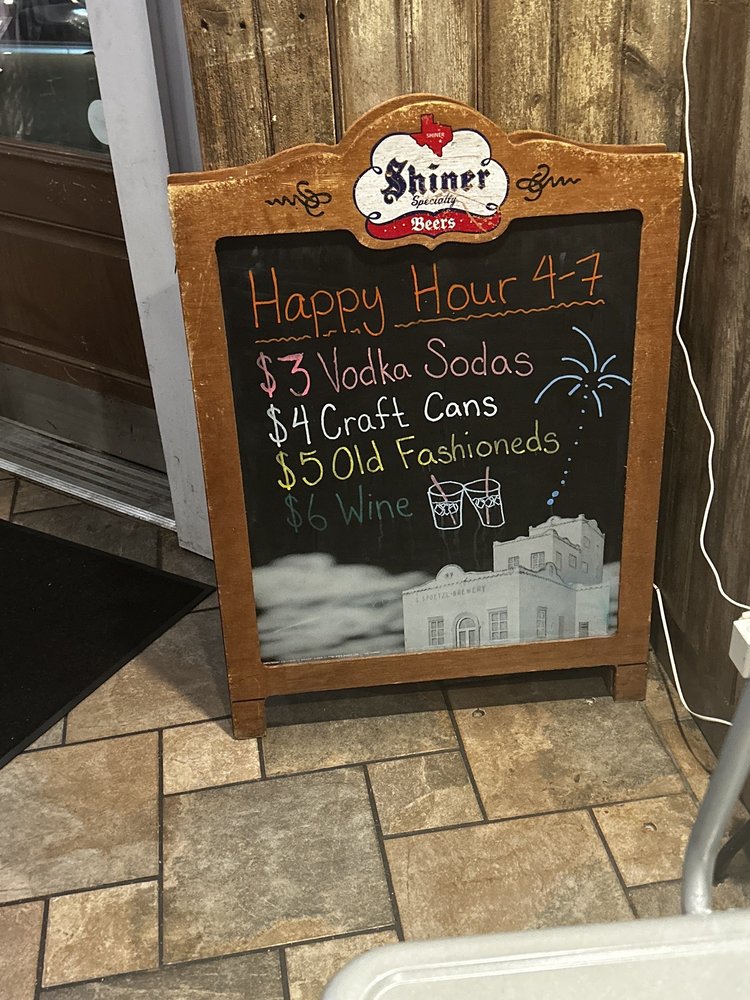 SHINER
Shiner
Specialty
Beers
Happy Hour 4-7
$3 Vodka Sodas
$4 Craft Cans
$5 Old Fashioneds
$6 Wine
SPOETZL BREWERY